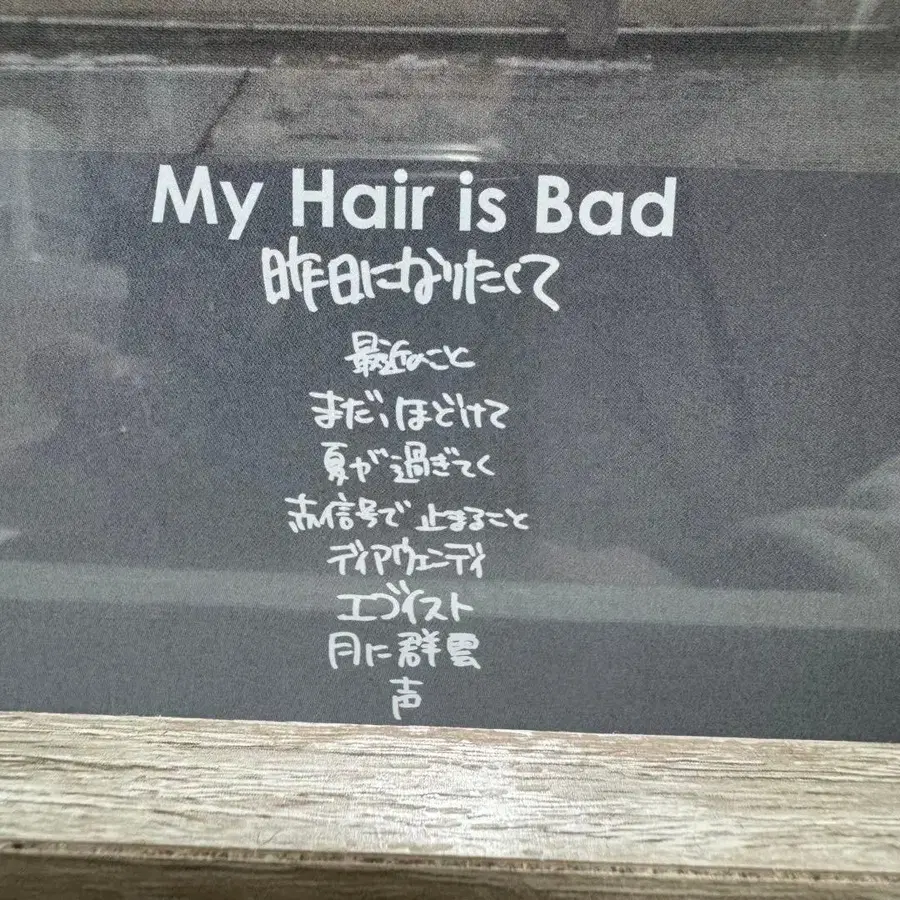 My Hair is Bad
昨日になりたくて
最近のこと
まだ、ほどけて
夏が過ぎてく
赤信号で止まること
ディアウェンディ
エゴイスト
月に群雲
声